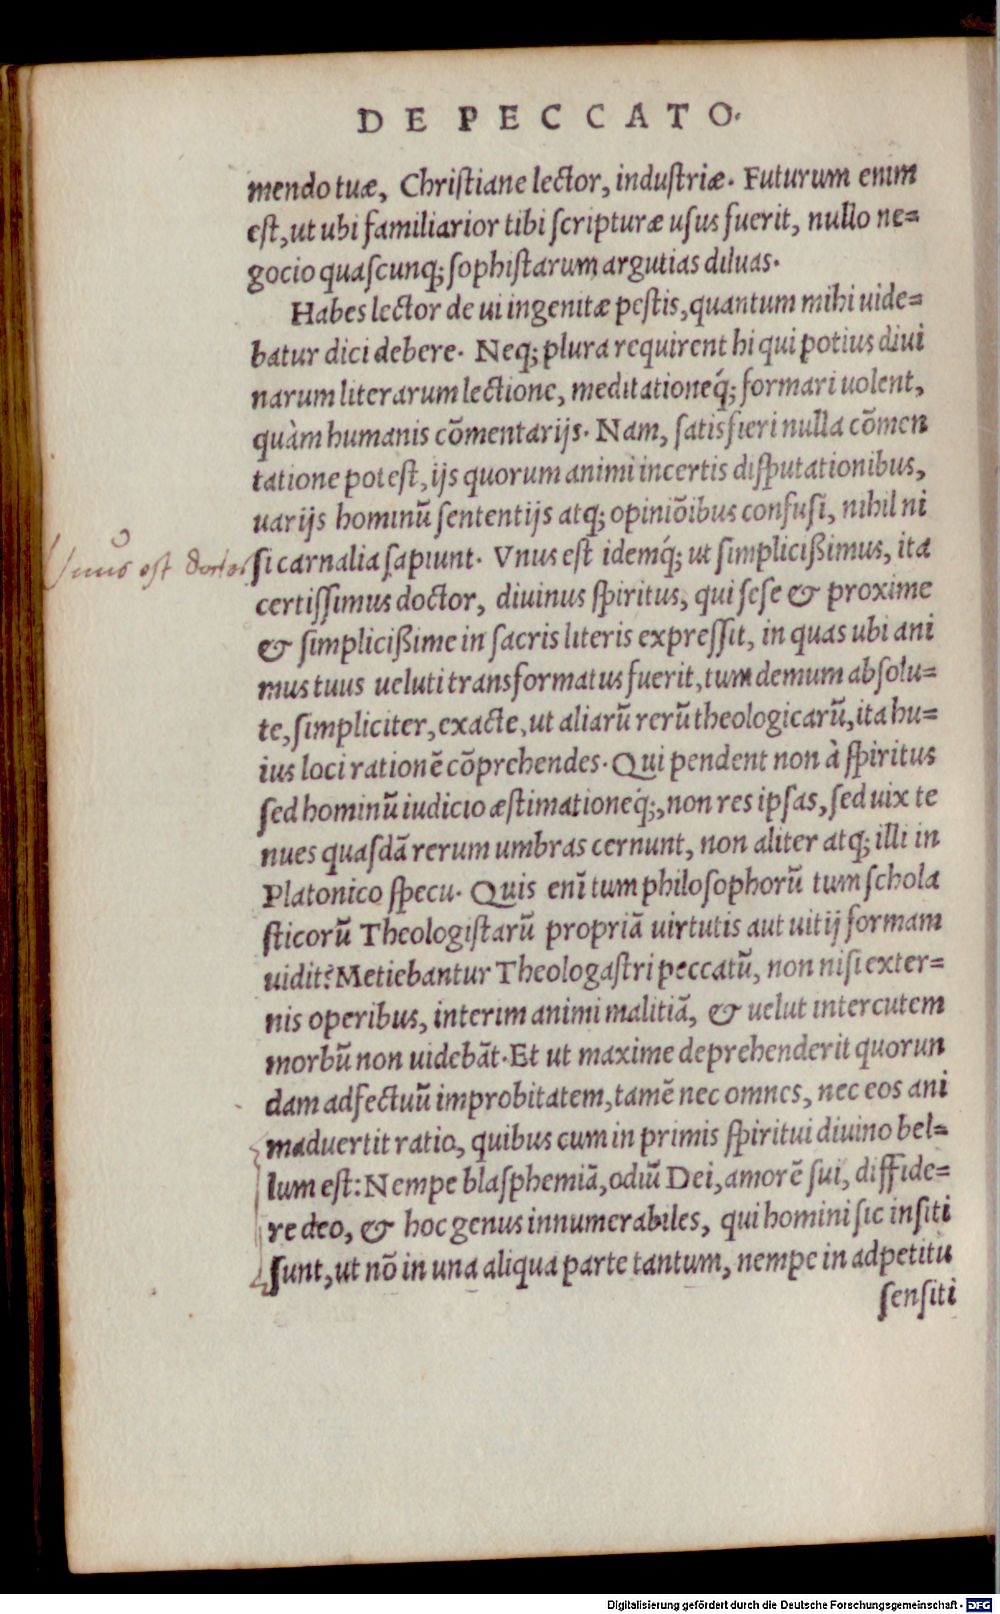 DE PECCATO.
mendo tuæ, Chriſtiane lector, induſtriæ. Futurum enim
eſt, ut ubi familiarior tibi ſcripturæ uſus fuerit, nullo ne=
gocio quaſcunq; ſophiſtarum argutias diluas.
Habes lector de ui ingenitæ peſtis, quantum mihi uide=
batur dici debere. Neq; plura requirent hi qui potius diui
narum literarum lectione, meditationeq́; formari uolent,
quàm humanis cōmentarijs. Nam, ſatisfieri nulla cōmen
tatione poteſt, ijs quorum animi incertis diſputationibus,
uarijs hominū ſententijs atq; opiniōibus confuſi, nihil ni
Vnus est doctor
ſi carnalia ſapiunt. Vnus eſt idemq́; ut ſimplicißimus, ita
certiſſimus doctor, diuinus ſpiritus, qui ſeſe & proxime
& ſimplicißime in ſacris literis expreſſit, in quas ubi ani
mus tuus ueluti transformatus fuerit, tum demum abſolu=
te, ſimpliciter, exacte, ut aliarū rerū theologicarū, ita hu=
ius loci rationē cōprehendes. Qui pendent non à ſpiritus
ſed hominū iudicio æſtimationeq́;, non res ipſas, ſed uix te
nues quaſdā rerum umbras cernunt, non aliter atq; illi in
Platonico ſpecu. Quis enī tum philoſophorū tum ſchola
ſticorū Theologiſtarū propriā uirtutis aut uitij formam
uidit? Metiebantur Theologaſtri peccatū, non niſi exter=
nis operibus, interim animi malitiā, & uelut intercutem
morbū non uidebāt. Et ut maxime deprehenderit quorun
dam adfectuū improbitatem, tamē nec omnes, nec eos ani
maduertit ratio, quibus cum in primis ſpiritui diuino bel=
lum eſt: Nempe blaſphemiā, odiū Dei, amorē ſui, diffide=
re deo, & hoc genus innumerabiles, qui homini ſic inſiti
ſunt, ut nō in una aliqua parte tantum, nempe in adpetitu
ſenſiti
Digitalisierung gefördert durch die Deutsche Forschungsgemeinschaft - DFG